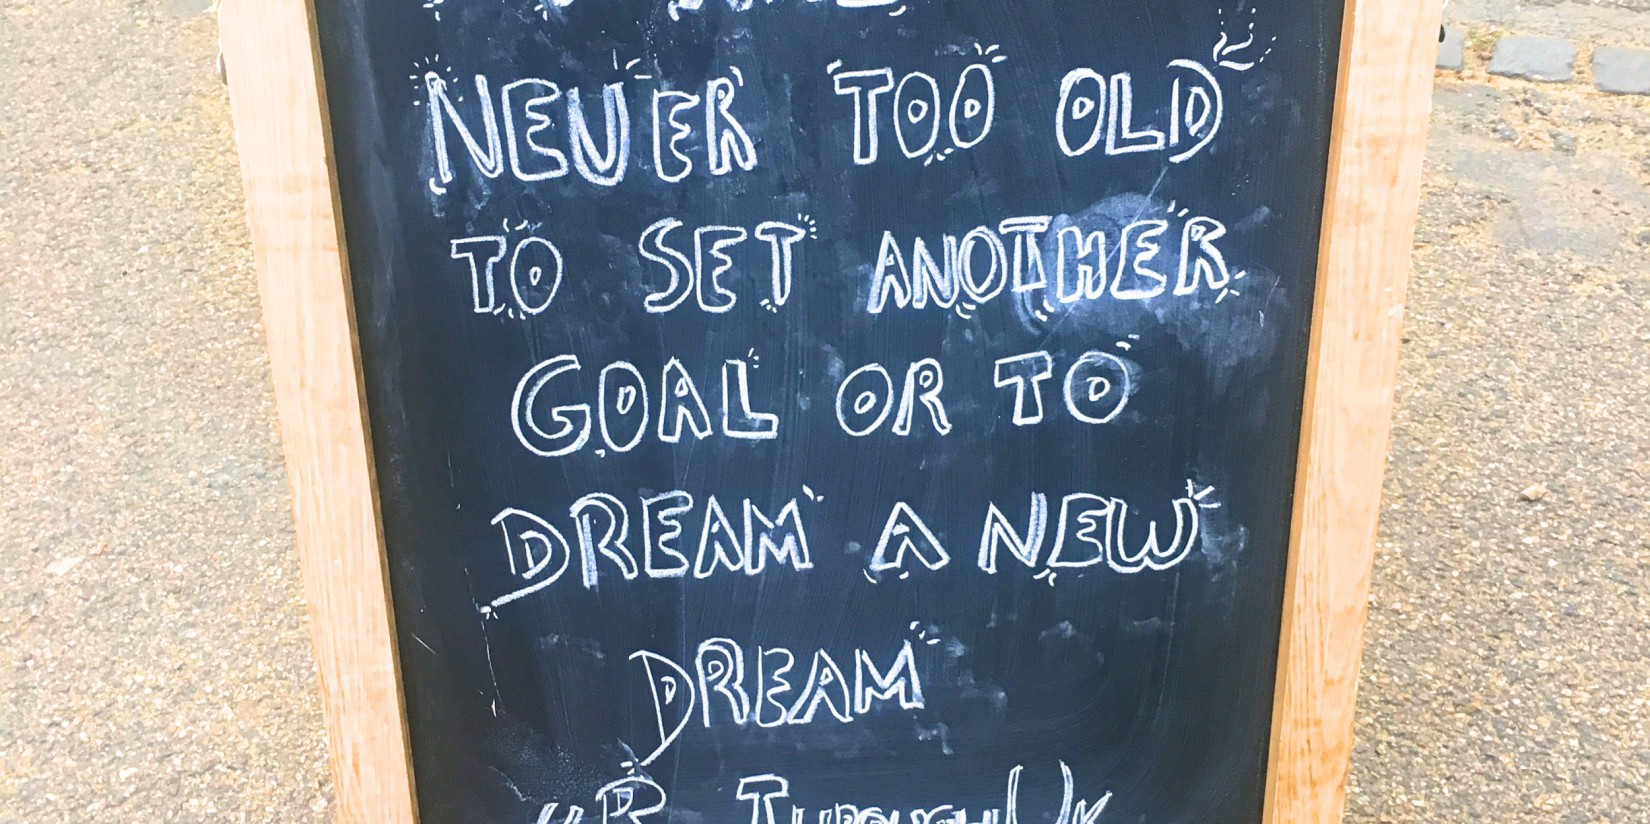 NEVER TOO OLD
TO SET ANOTHER
GOAL OR TO
DREAM A NEW
DREAM